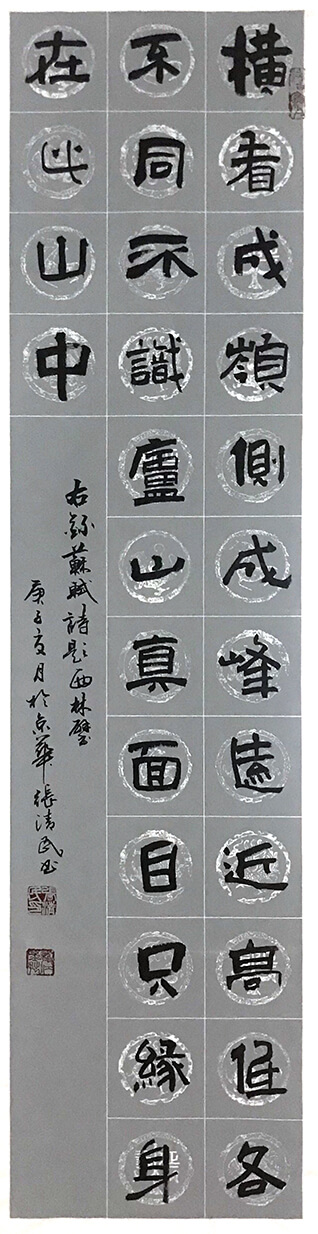 橫看成嶺側成峰遠近高低各
不同不識廬山真面目只緣身
在此山中
右錄蘇軾詩題西林壁
庚子夏月於京華張清民書